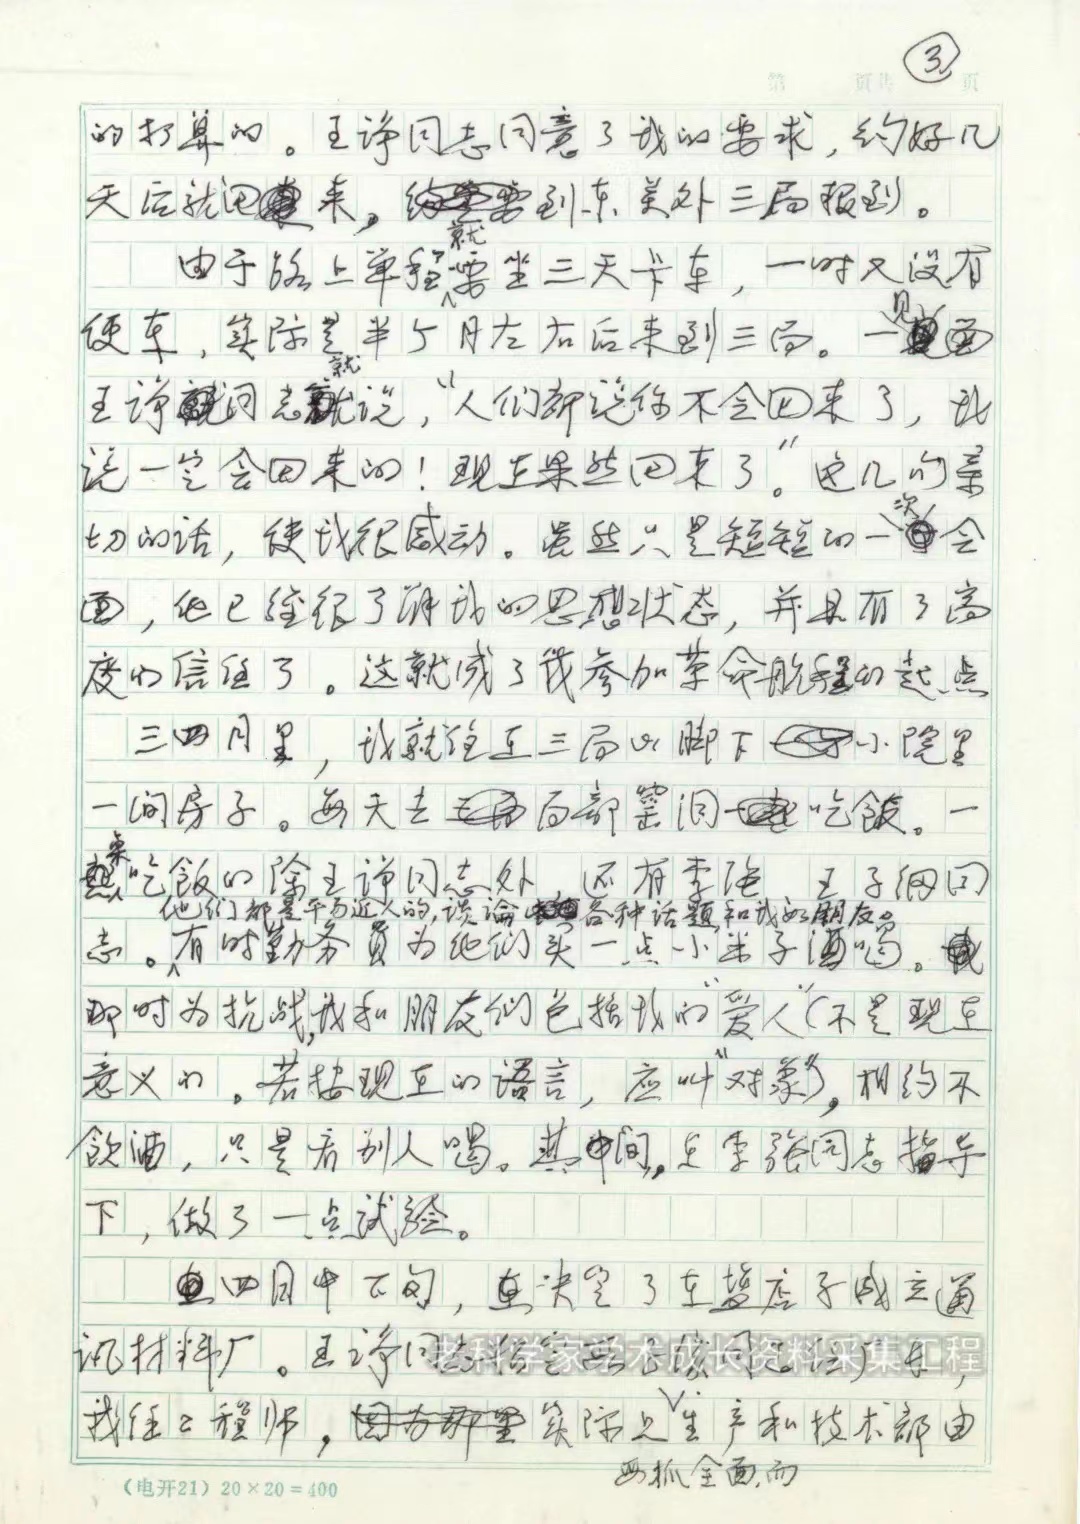 第 页共 页
3
的打算的。王诤同志同意了我的要求，约好几
天后就回来，到东关外三局报到。
由于路上单程就要坐三天卡车，一时又没有
便车，实际是半个月左右后来到三局。一见面
王诤同志就说，“人们都说你不会回来了，我
说一定会回来的！现在果然回来了。”这几句亲
切的话，使我很感动。虽然只是短短的一次会
面，他已经很了解我的思想状态，并且有了高
度的信任了。这就成了我参加革命航程的起点
三四月里，我就住在三局山脚下小院里
一间房子。每天去局部窑洞吃饭。一
桌吃饭的除王诤同志外，还有李强 王子纲同
他们都是平易近人的，谈论各种话题，和我如朋友。
志。有时勤务员为他们买一点小米子酒喝。
那时为抗战，我和朋友们包括我的“爱人”（不是现在
意义的。若按现在的语言，应叫“对象”），相约不
饮酒，只是看别人喝。其中间，在李强同志指导
下，做了一点试验。
四月中下旬，决定了在盐店子成立通
讯材料厂。王诤同志 厂长，
我任工程师，实际上生产和技术部由
要抓全面，而
老科学家学术成长资料采集工程
（电开21）20×20＝400